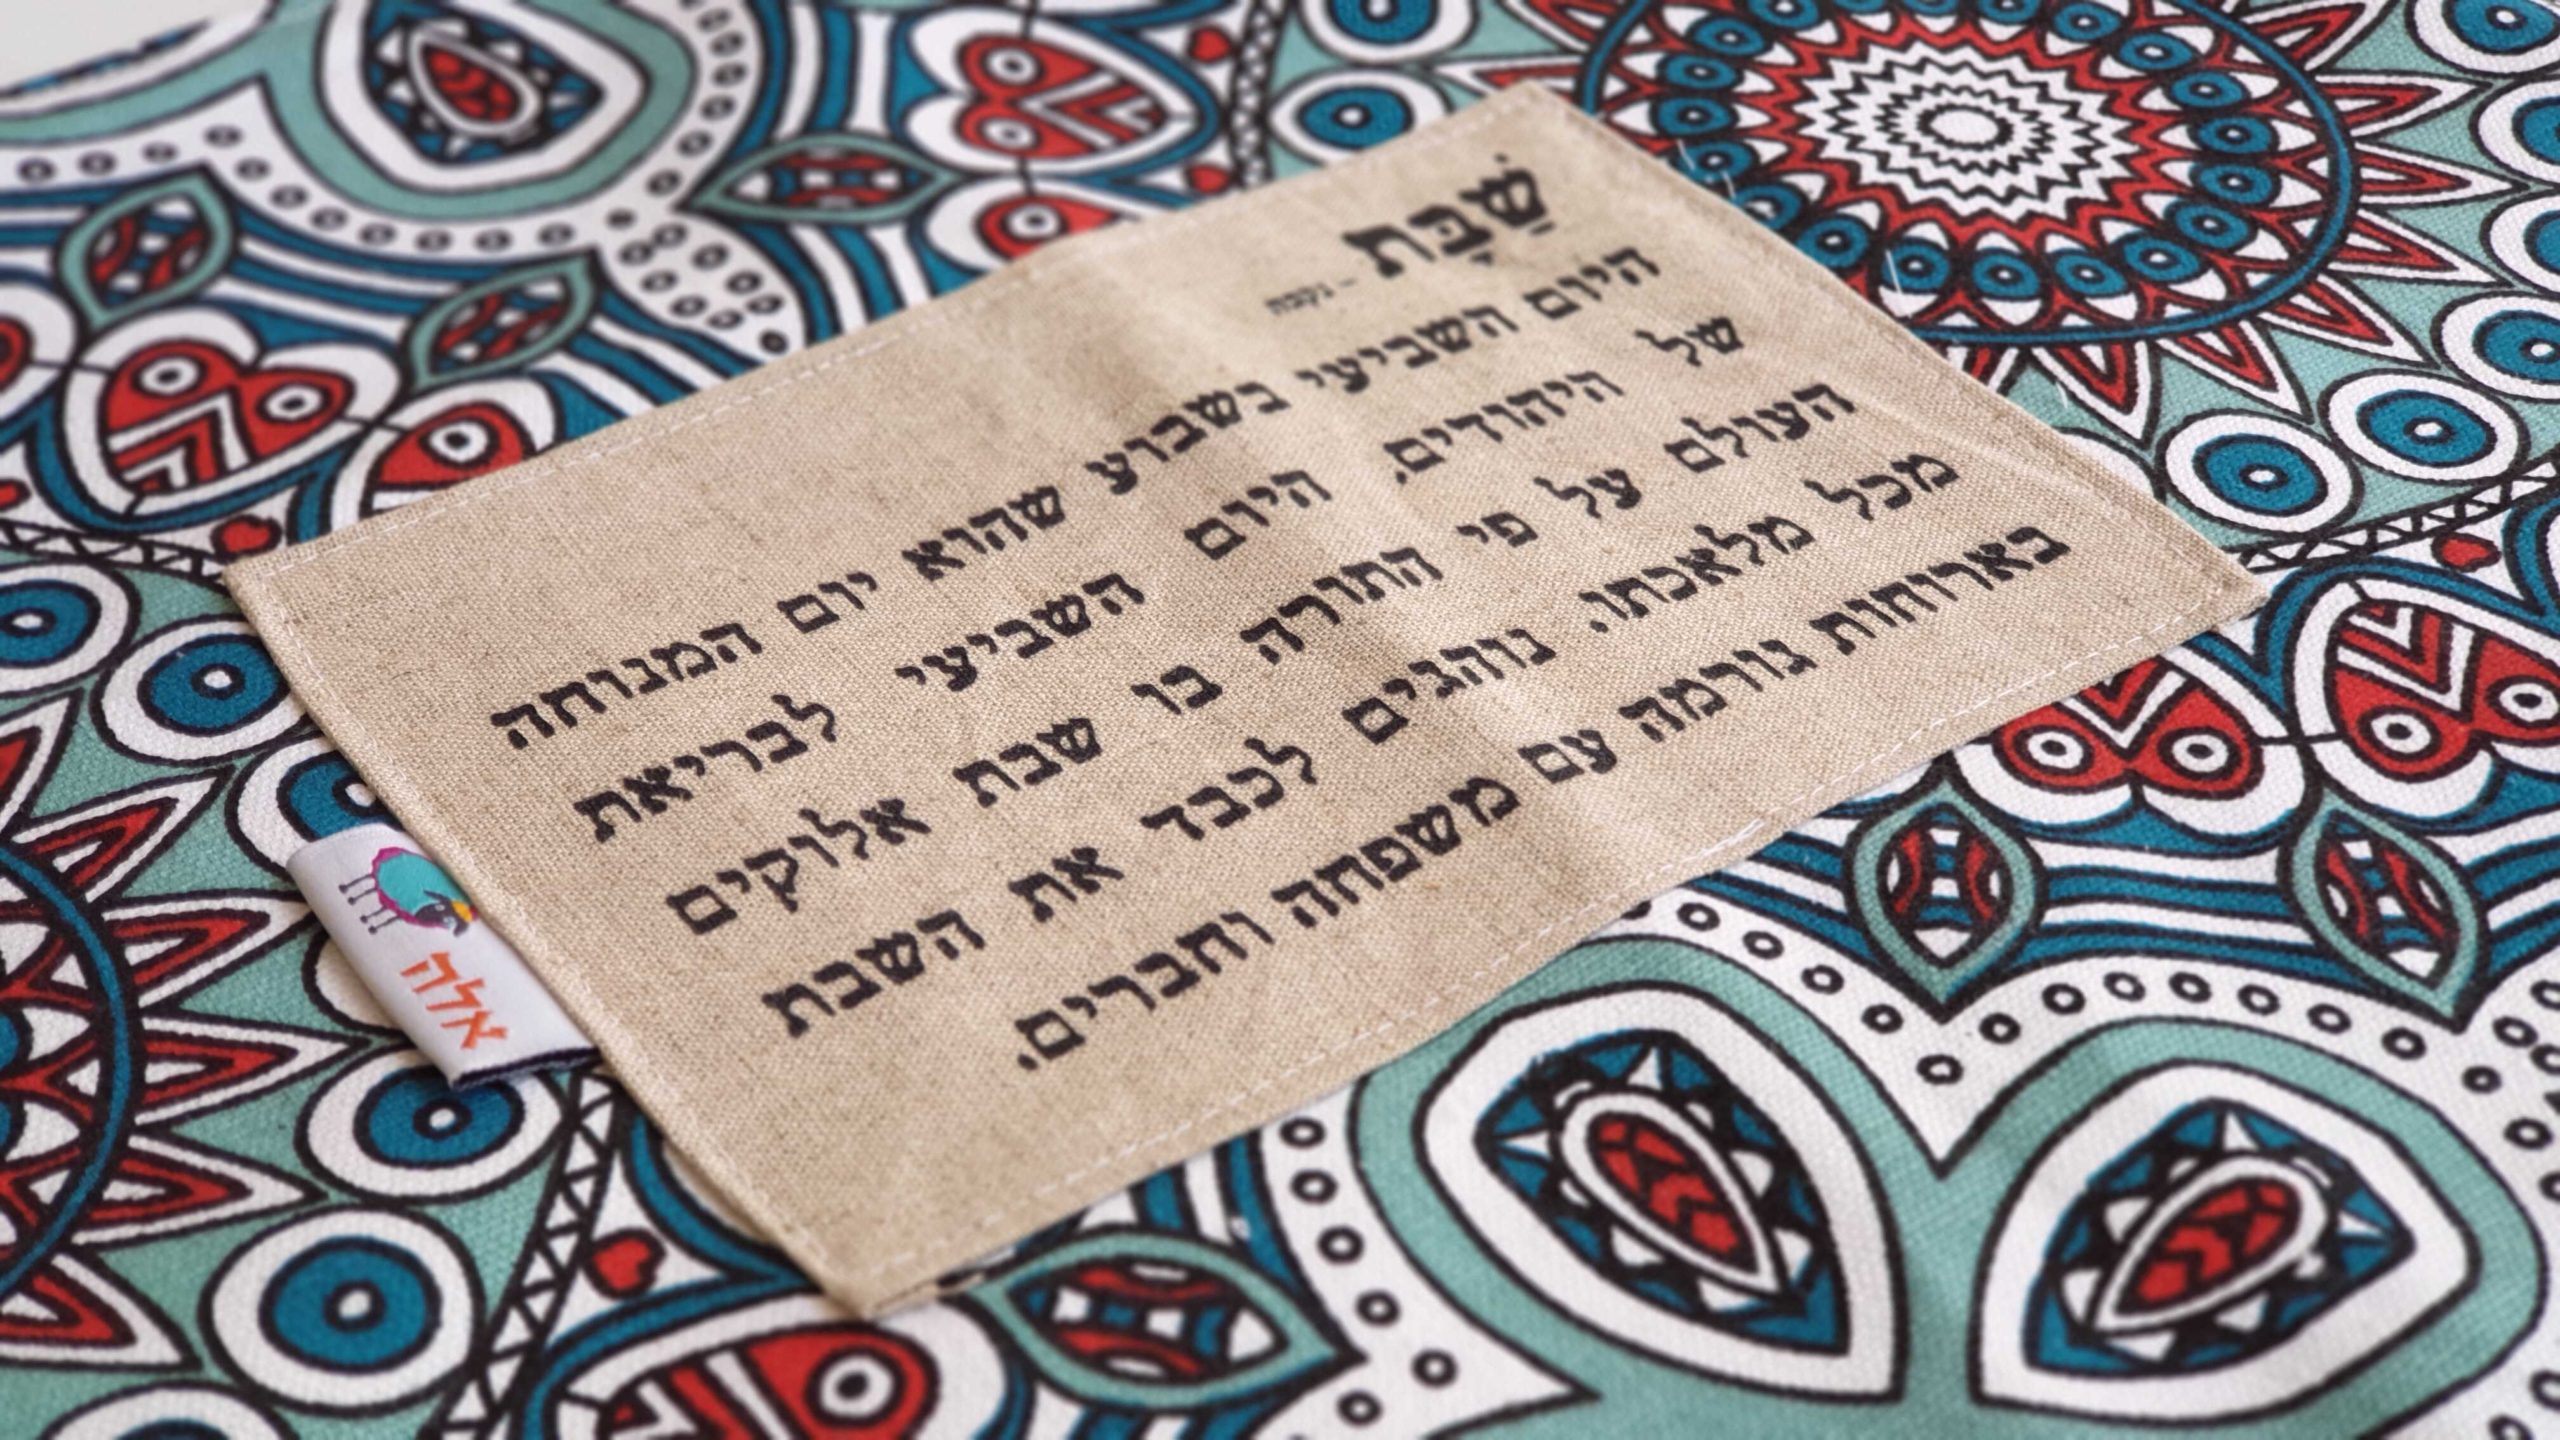 שַׁבָּת - נקבה
היום השביעי בשבוע שהוא יום המנוחה
של היהודים. היום השביעי לבריאת
העולם על פי התורה בו שבת אלוקים
מכל מלאכתו. נוהגים לכבד את השבת
בארוחות גורמה עם משפחה וחברים.
אלה